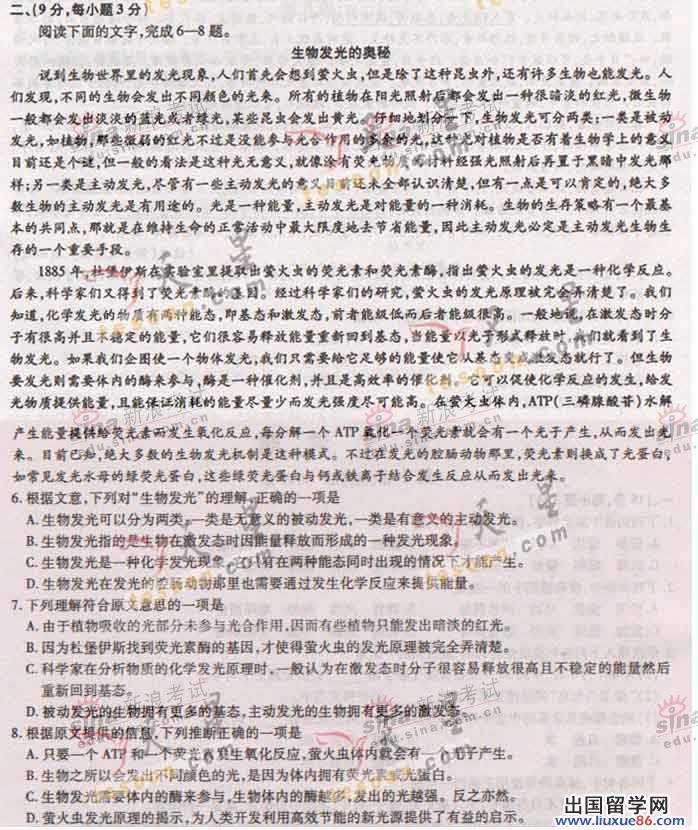 二、(9分,每小题3分)
阅读下面的文字,完成6—8题。
生物发光的奥秘
说到生物世界里的发光现象,人们首先会想到萤火虫,但是除了这种昆虫外,还有许多生物也能发光。人
们发现,不同的生物会发出不同颜色的光来。所有的植物在阳光照射后都会发出一种很暗淡的红光,微生物
一般都会发出淡淡的蓝光或者绿光,某些昆虫会发出黄光。仔细地划分一下,生物发光可分两类:一类是被动
发光,如植物,那些微弱的红光不过是没能参与光合作用的多余的光,这种光对植物是否有着生物学上的意义
目前还是个谜,但一般的看法是这种光无意义,就像涂有荧光物质的材料经强光照射后再置于黑暗中发光那
样;另一类是主动发光,尽管有一些主动发光的意义目前还未全部认识清楚,但有一点是可以肯定的,绝大多
数生物的主动发光是有用途的。光是一种能量,主动发光是对能量的一种消耗。生物的生存策略有一个最基
本的共同点,那就是在维持生命的正常活动中最大限度地去节省能量,因此主动发光必定是主动发光生物生
存的一个重要手段。
1885年,杜堡伊斯在实验室里提取出萤火虫的荧光素和荧光素酶,指出萤火虫的发光是一种化学反应。
后来,科学家们又得到了荧光素酶的基因。经过科学家们的研究,萤火虫的发光原理被完全弄清楚了。我们
知道,化学发光的物质有两种能态,即基态和激发态,前者能级低而后者能级很高。一般地说,在激发态时分
子有很高并且不稳定的能量,它们很容易释放能量重新回到基态,当能量以光子形式释放时,我们就看到了生
物发光。如果我们企图使一个物体发光,我们只需要给它足够的能量使它从基态变成激发态就行了。但生物
要发光则需要体内的酶来参与,酶是一种催化剂,并且是高效率的催化剂。它可以促使化学反应的发生,给发
光物质提供能量,且能保证消耗的能量尽量少而发光强度尽可能高。在萤火虫体内,ATP(三磷腺酸苷)水解
产生能量提供给荧光素而发生氧化反应,每分解一个ATP氧化一个荧光素就会有一个光子产生,从而发出光
来。目前已知,绝大多数的生物发光机制是这种模式。不过在发光的腔肠动物那里,荧光素则换成了光蛋白,
如常见发光水母的绿荧光蛋白,这些绿荧光蛋白与钙或铁离子结合发生反应从而发出光来。
6.根据文意,下列对“生物发光”的理解,正确的一项是
A.生物发光可以分为两类,一类是无意义的被动发光,一类是有意义的主动发光。
B.生物发光指的是生物在激发态时因能量释放而形成的一种发光现象。
C.生物发光是一种化学发光现象,它只有在两种能态同时出现的情况下才能产生。
D.生物发光在发光的腔肠动物那里也需要通过发生化学反应来提供能量。
7.下列理解符合原文意思的一项是
A.由于植物吸收的光部分未参与光合作用,因而有些植物只能发出暗淡的红光。
B.因为杜堡伊斯找到荧光素酶的基因,才使得萤火虫的发光原理被完全弄清楚。
C.科学家在分析物质的化学发光原理时,一般认为在激发态时分子很容易释放很高且不稳定的能量然后
重新回到基态。
D.被动发光的生物拥有更多的基态,主动发光的生物拥有更多的激发态。
8.根据原文提供的信息,下列推断正确的一项是
A.只要一个ATP和一个荧光素发生氧化反应,萤火虫体内就会有一个光子产生。
B.生物之所以会发出不同颜色的光,是因为体内拥有荧光素或光蛋白。
C.生物发光需要体内的酶来参与,生物体内的酶越多,发出的光越强。反之亦然。
D.萤火虫发光原理的揭示,为人类开发利用高效节能的新光源提供了有益的启示。
出国留学网
www.liuxue86.com